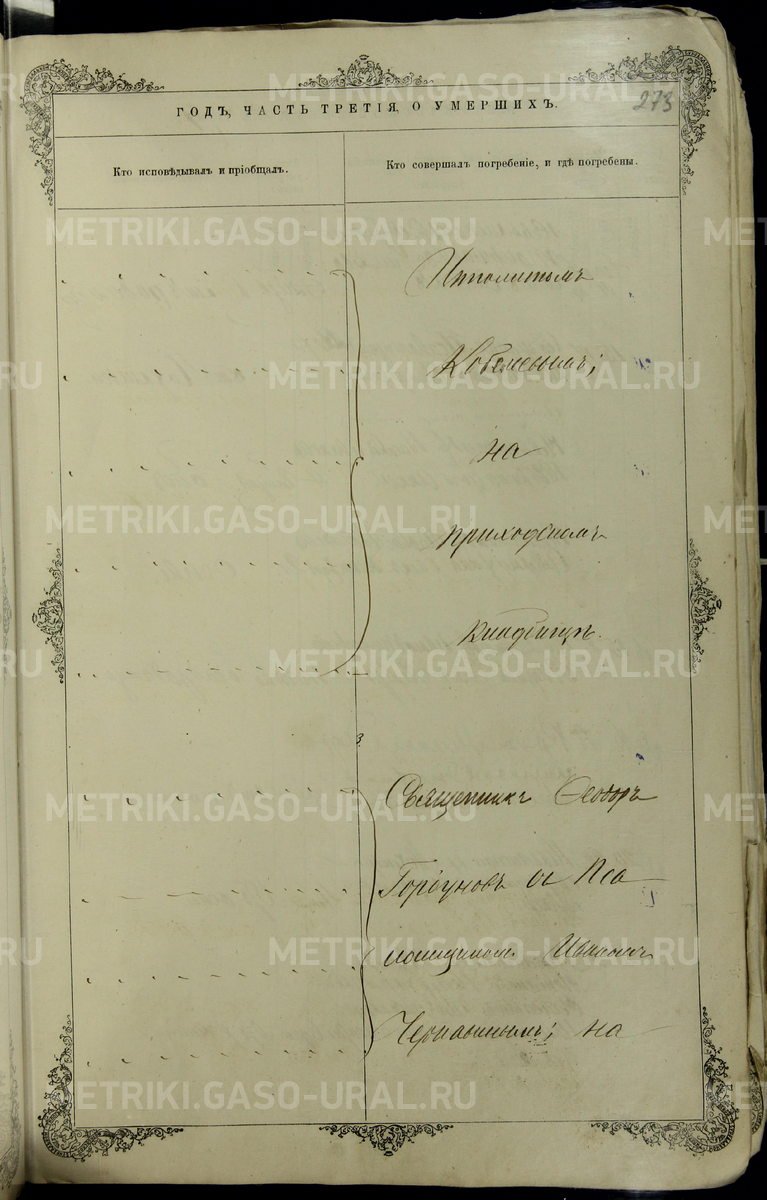 273
ГОДЪ, ЧАСТЬ ТРЕТІЯ, О УМЕРШИХЪ.
Кто исповѣдывалъ и пріобщалъ.
Кто совершалъ погребеніе, и гдѣ погребены.
Ипполитомъ
на
приходскомъ
кладбищѣ.
Священникъ Ѳеодоръ
Горбуновъ съ Пса
ломщикомъ Иваномъ
на
METRIKI.GASO-URAL.RU